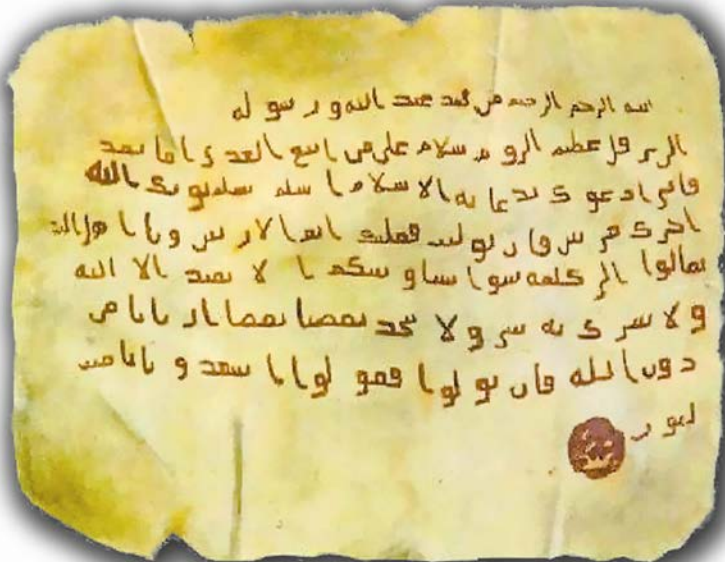 بسم الله الرحمن الرحيم من محمد عبد الله و رسو له
الى هرقل عظيم الروم سلام على من اتبع الهدى اما بعد
فاني ادعو ك بدعاية الاسلام اسلم تسلم يوتك الله
اجرك مرتين فان توليت فعليك اثم الاريسين ويا اهل الكت
تعالوا الى كلمة سوا بيننا وبينكم ا لا نعبد الا الله
و لا نشر ك به شيا و لا يتخذ بعضنا بعضا اربابا من
دون الله فان تو لوا فقو لوا اشهد و ابانا مس
لمو ن